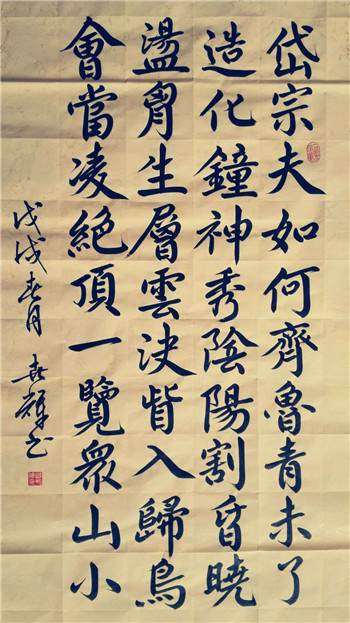 岱宗夫如何齊魯青未了
造化鐘神秀陰陽割昏曉
盪胷生層雲決眥入歸鳥
會當凌絕頂一覽眾山小
戊戌春月 喜輝书